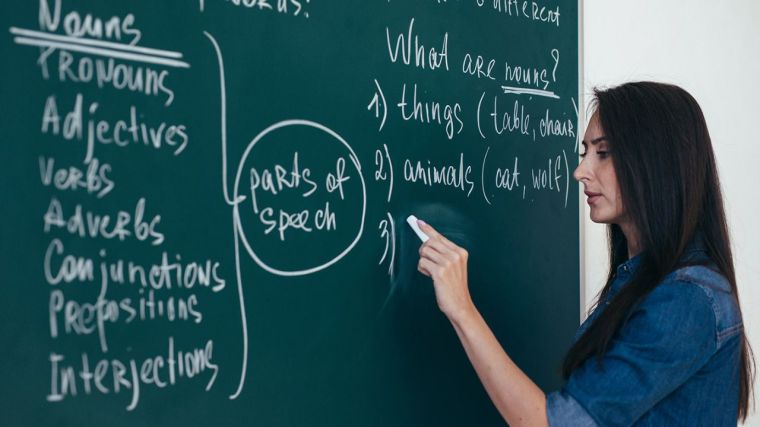 Nouns
Pronouns
Adjectives
Verbs
Adverbs
Conjunctions
Prepositions
Interjections
parts of
speech
different
What are nouns?
1) things (table, chair)
2) animals (cat, wolf)
3)